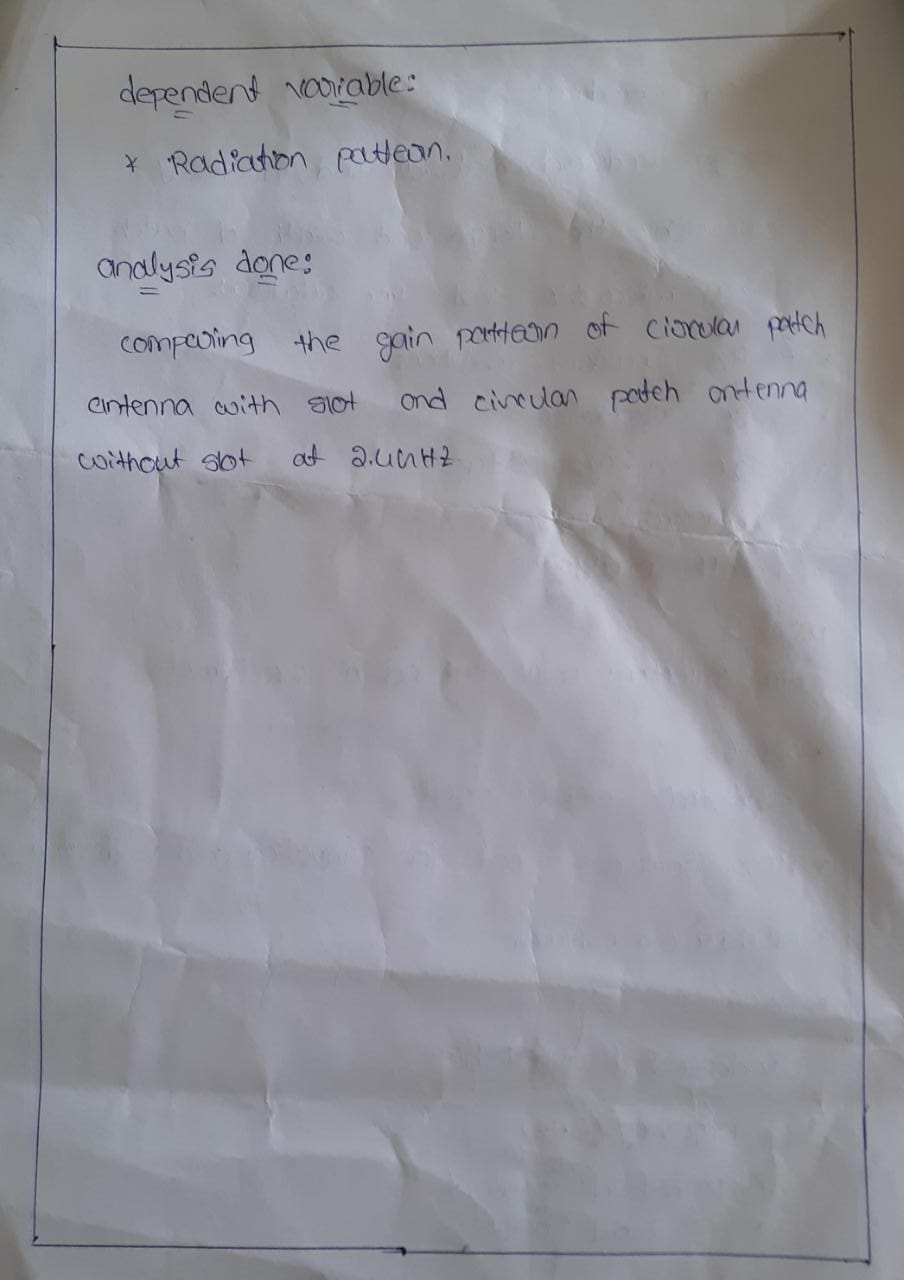 dependent variable:
* Radiation pattern.
analysis done:
comparing the gain pattern of circular patch
antenna with slot and circular patch antenna
without slot at 2.4GHz